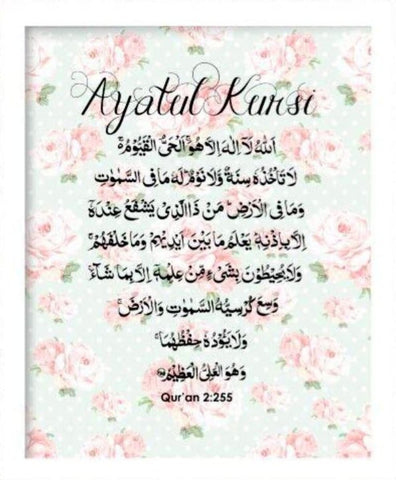 Ayatul Kursi
اَللّٰهُ لَآ اِلٰهَ اِلَّا هُوَ ۚ اَلْحَىُّ الْقَيُّوْمُ ۚ
لَا تَأْخُذُهٗ سِنَةٌ وَّلَا نَوْمٌ ؕ لَهٗ مَا فِى السَّمٰوٰتِ
وَمَا فِى الْاَرْضِ ؕ مَنْ ذَا الَّذِىْ يَشْفَعُ عِنْدَهٗۤ
اِلَّا بِاِذْنِهٖ ؕ يَعْلَمُ مَا بَيْنَ اَيْدِيْهِمْ وَمَا خَلْفَهُمْ ۚ
وَلَا يُحِيْطُوْنَ بِشَىْءٍ مِّنْ عِلْمِهٖۤ اِلَّا بِمَا شَآءَ ۚ
وَسِعَ كُرْسِيُّهُ السَّمٰوٰتِ وَالْاَرْضَ ۚ
وَلَا يَئُوْدُهٗ حِفْظُهُمَا ۚ
وَهُوَ الْعَلِىُّ الْعَظِيْمُ
Qur'an 2:255